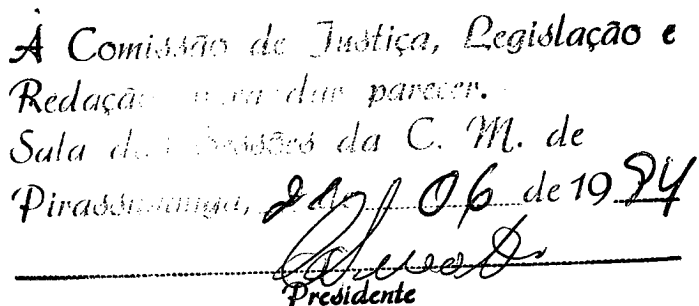 À Comissão de Justiça, Legislação e
Redação para dar parecer.
Sala das Sessões da C. M. de
Pirassununga, de 06 de 19
Presidente